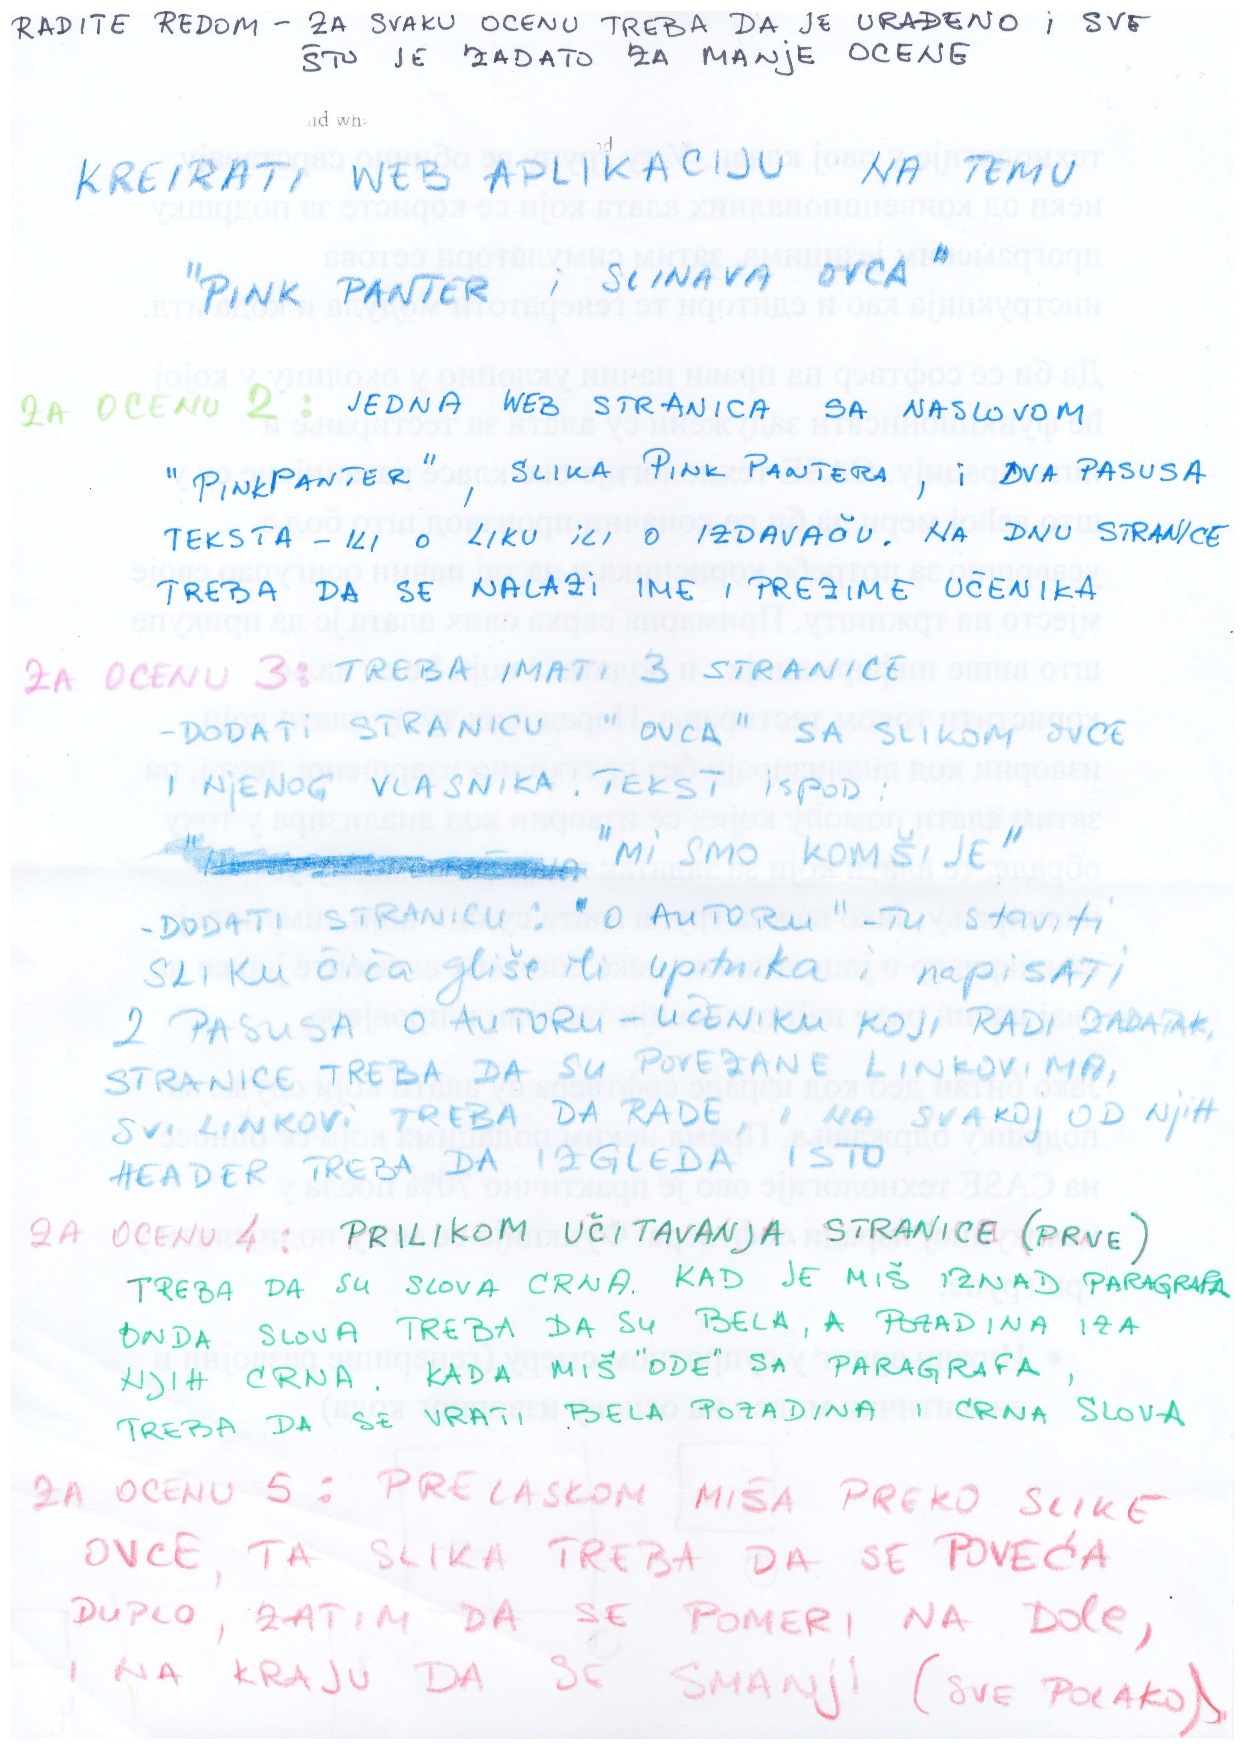 RADITE REDOM – ZA SVAKU OCENU TREBA DA JE URAĐENO i SVE
ŠTO JE ZADATO ZA MANjE OCENE
KREIRATI WEB APLIKACIJU NA TEMU
"PINK PANTER i SLINAVA OVCA"
ZA OCENU 2: JEDNA WEB STRANICA SA NASLOVOM
"PINKPANTER", SLIKA PINK PANTERA, i DVA PASUSA
TEKSTA – ILI O LIKU ILI O IZDAVAČU. NA DNU STRANICE
TREBA DA SE NALAZI IME I PREZIME UČENIKA
ZA OCENU 3: TREBA IMATI 3 STRANICE
-DODATI STRANICU "OVCA" SA SLIKOM OVCE
I NJENOG VLASNIKA. TEKST ISPOD:
"MI SMO KOMŠIJE"
-DODATI STRANICU: "O AUTORU" TU staviti
SLIKU čiča gliše ili upitnika i napISATI
2 PASUSA O AUTORU - UČENIKU KOJI RADI ZADATAK.
STRANICE TREBA DA SU POVEZANE LINKOVIMA,
SVI LINKOVI TREBA DA RADE, I NA SVAKOJ OD NJIH
HEADER TREBA DA IZGLEDA ISTO
ZA OCENU 4: PRILIKOM UČITAVANJA STRANICE (PRVE)
TREBA DA SU SLOVA CRNA. KAD JE MIŠ IZNAD PARAGRAFA
ONDA SLOVA TREBA DA SU BELA, A POZADINA IZA
NJIH CRNA. KADA MIŠ "ODE" SA PARAGRAFA,
TREBA DA SE VRATI BELA POZADINA I CRNA SLOVA
ZA OCENU 5: PRELASKOM MIŠA PREKO SLIKE
OVCE, TA SLIKA TREBA DA SE POVEĆA
DUPLO, ZATIM DA SE POMERI NA DOLE,
I NA KRAJU DA SE SMANJI (SVE POLAKO).